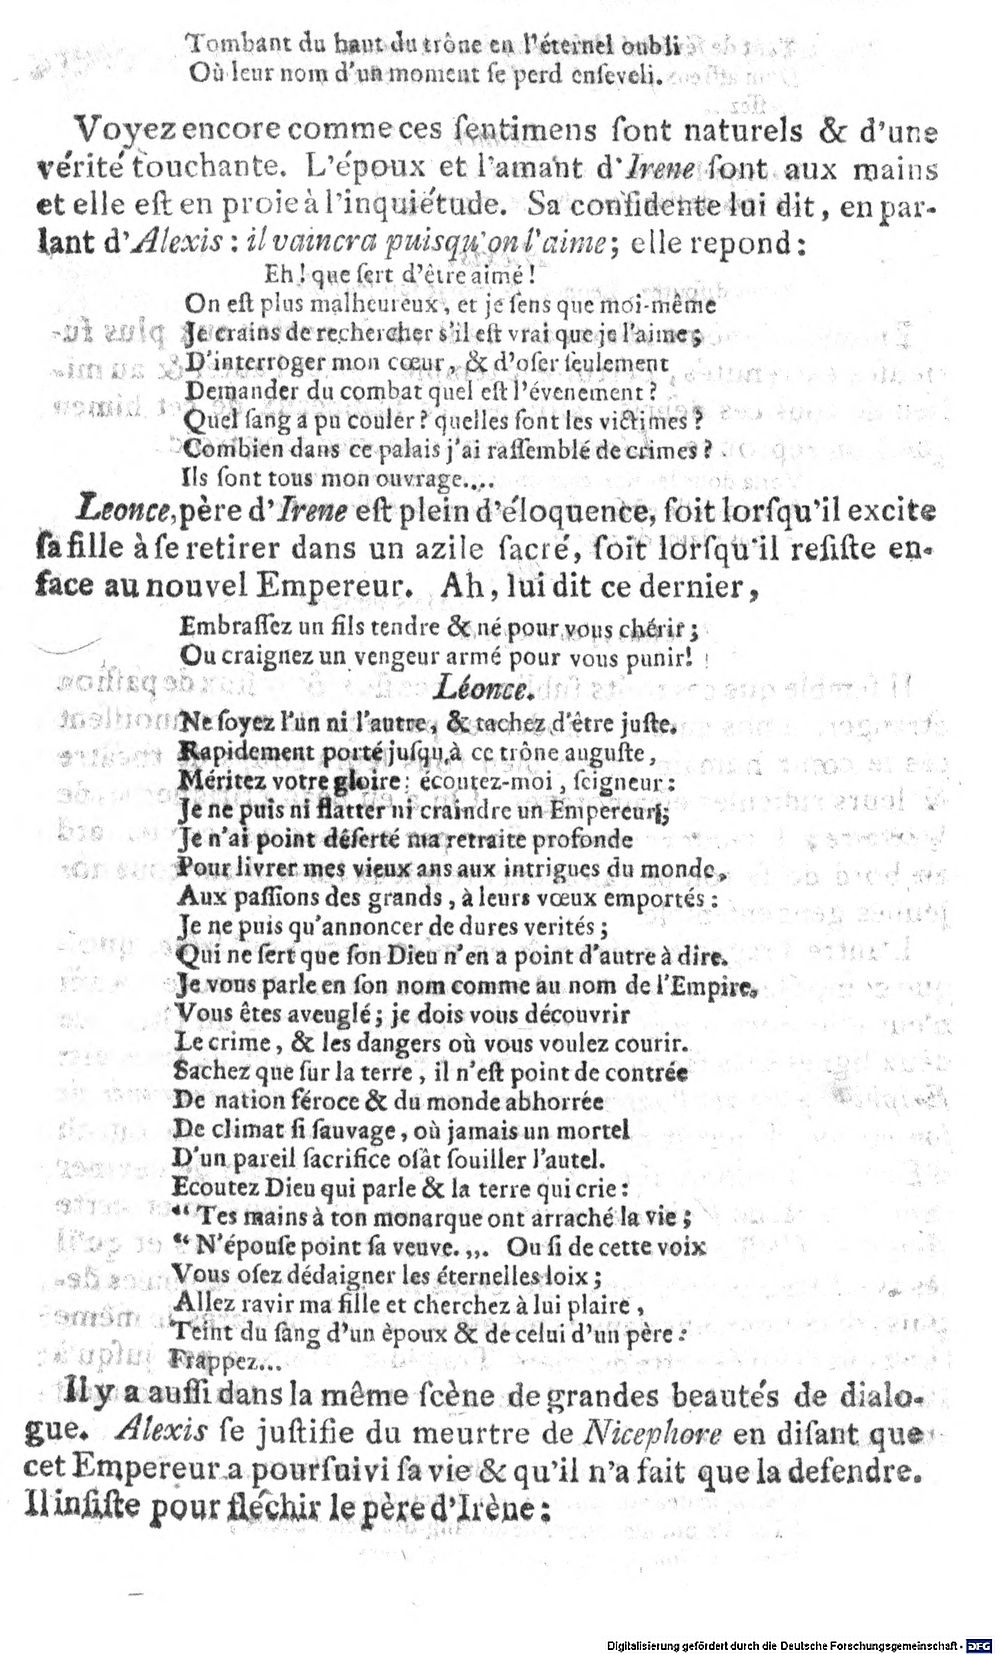 Tombant du haut du trône en l'éternel oubli
Où leur nom d'un moment ſe perd enſeveli.
Voyez encore comme ces ſentimens ſont naturels & d'une
vérité touchante. L'époux et l'amant d'Irene ſont aux mains
et elle eſt en proie à l'inquiétude. Sa confidente lui dit, en par-
lant d'Alexis : il vaincra puisqu'on l'aime; elle repond:
Eh! que ſert d'être aimé!
On eſt plus malheureux, et je ſens que moi-même
Je crains de rechercher s'il eſt vrai que je l'aime;
D'interroger mon cœur, & d'oſer ſeulement
Demander du combat quel eſt l'évenement?
Quel ſang a pu couler? quelles ſont les victimes?
Combien dans ce palais j'ai raſſemblé de crimes?
Ils ſont tous mon ouvrage....
Leonce, père d'Irene eſt plein d'éloquence, ſoit lorſqu'il excite
ſa fille à ſe retirer dans un azile ſacré, ſoit lorſqu'il reſiſte en-
face au nouvel Empereur. Ah, lui dit ce dernier,
Embraſſez un fils tendre & né pour vous chérir;
Ou craignez un vengeur armé pour vous punir!
Léonce.
Ne ſoyez l'un ni l'autre, & tachez d'être juſte.
Rapidement porté juſqu'à ce trône auguſte,
Méritez votre gloire: écoutez-moi, ſeigneur:
Je ne puis ni flatter ni craindre un Empereur;
Je n'ai point déſerté ma retraite profonde
Pour livrer mes vieux ans aux intrigues du monde,
Aux paſſions des grands, à leurs vœux emportés:
Je ne puis qu'annoncer de dures verités;
Qui ne ſert que ſon Dieu n'en a point d'autre à dire.
Je vous parle en ſon nom comme au nom de l'Empire.
Vous êtes aveuglé; je dois vous découvrir
Le crime, & les dangers où vous voulez courir.
Sachez que ſur la terre, il n'eſt point de contrée
De nation féroce & du monde abhorrée
De climat ſi ſauvage, où jamais un mortel
D'un pareil ſacrifice oſât ſouiller l'autel.
Ecoutez Dieu qui parle & la terre qui crie:
“Tes mains à ton monarque ont arraché la vie;
“N'épouſe point ſa veuve.,,. Ou ſi de cette voix
Vous oſez dédaigner les éternelles loix;
Allez ravir ma fille et cherchez à lui plaire,
Teint du ſang d'un èpoux & de celui d'un père:
Frappez...
Il y a auſſi dans la même ſcène de grandes beautés de dialo-
gue. Alexis ſe juſtifie du meurtre de Nicephore en diſant que
cet Empereur a pourſuivi ſa vie & qu'il n'a fait que la defendre.
Il inſiſte pour fléchir le père d'Irène:
Digitalisierung gefördert durch die Deutsche Forschungsgemeinschaft - DFG